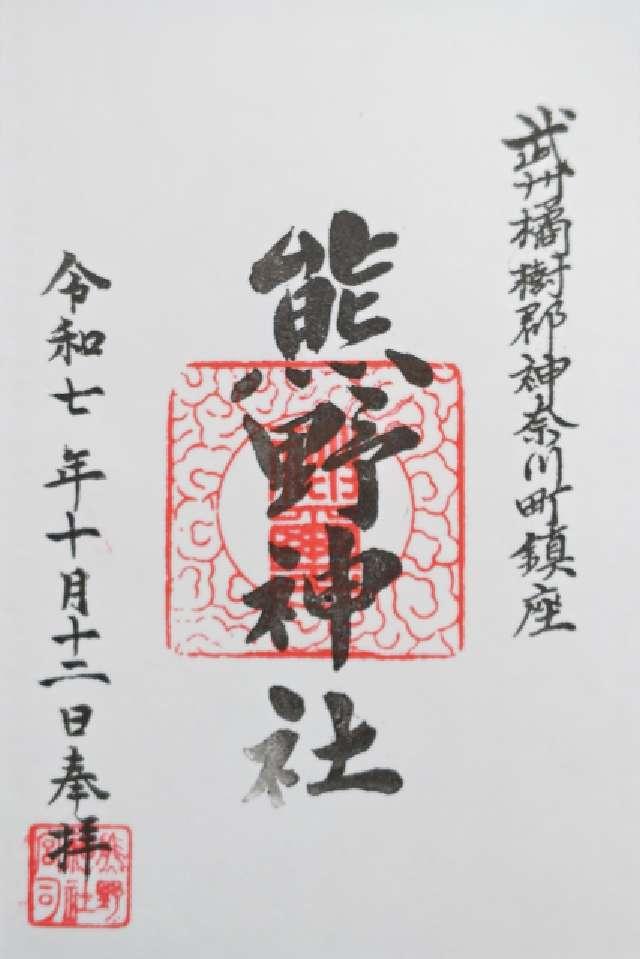 武州橘樹郡神奈川町鎮座
熊野神社
令和七年十月十二日奉拝
熊野
神社
宮司